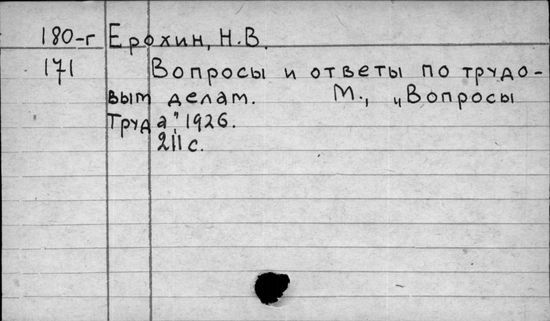 180-г Ерохин, Н.В.
171 Вопросы и ответы по трудо-
вым делам. М., „Вопросы
Труда", 1926.
211 с.